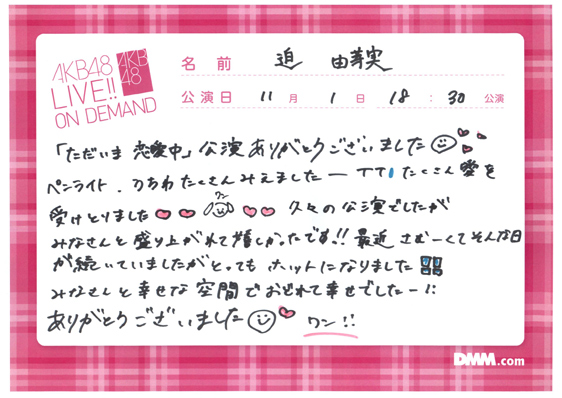 AKB48
LIVE!!
ON DEMAND
AKB
48
名前 迫 由芽実
公演日 11月 1日 18:30 公演
「ただいま 恋愛中」公演ありがとうございました
ペンライト、うちわ たくさんみえましたー TTI たくさん愛を
ワン
受けとりました 久々の公演でしたが
みなさんと盛り上がれて嬉しかったです!! 最近 さむーくてそんな日
が続いていましたが とっても ホットになりました
みなさんと幸せな空間でおどれて幸せでしたー!!
ありがとうございました ワン!!
DMM.com